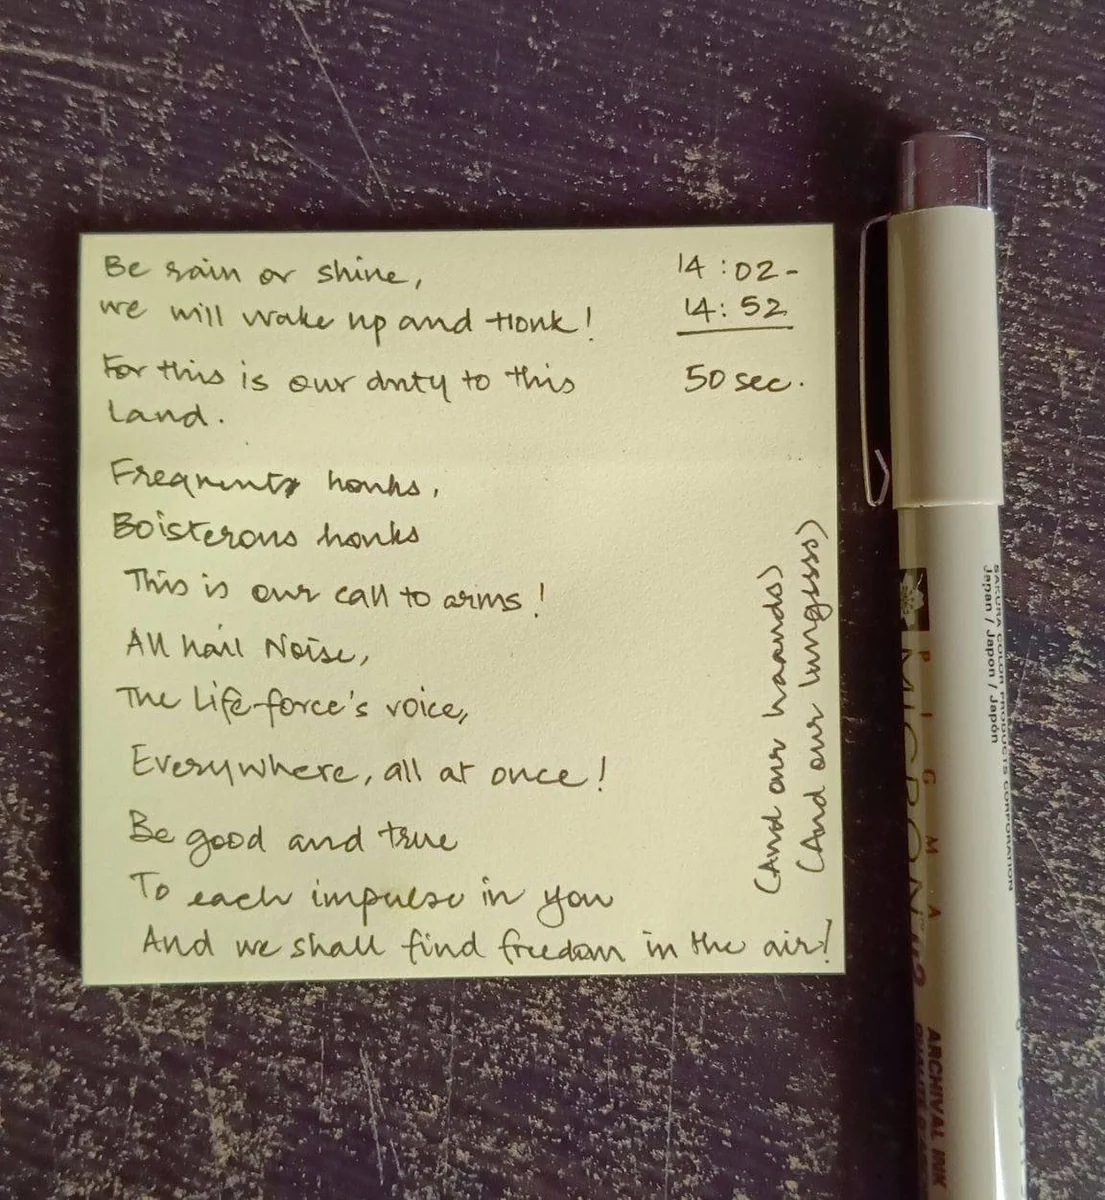 Be rain or shine,
we will wake up and Honk!
For this is our duty to this
Land.
14:02-
14:52
50 sec.
Frequents honks,
Boisterous honks
This is our call to arms!
All hail Noise,
The Life-force's voice,
Everywhere, all at once!
Be good and true
To each impulse in you
And we shall find freedom in the air!
(And our haands)
(And our lungssss)
SAKURA COLOR PRODUCTS CORPORATION
Japan / Japon / Japón
PIGMA
MICRON
ARCHIVAL INK